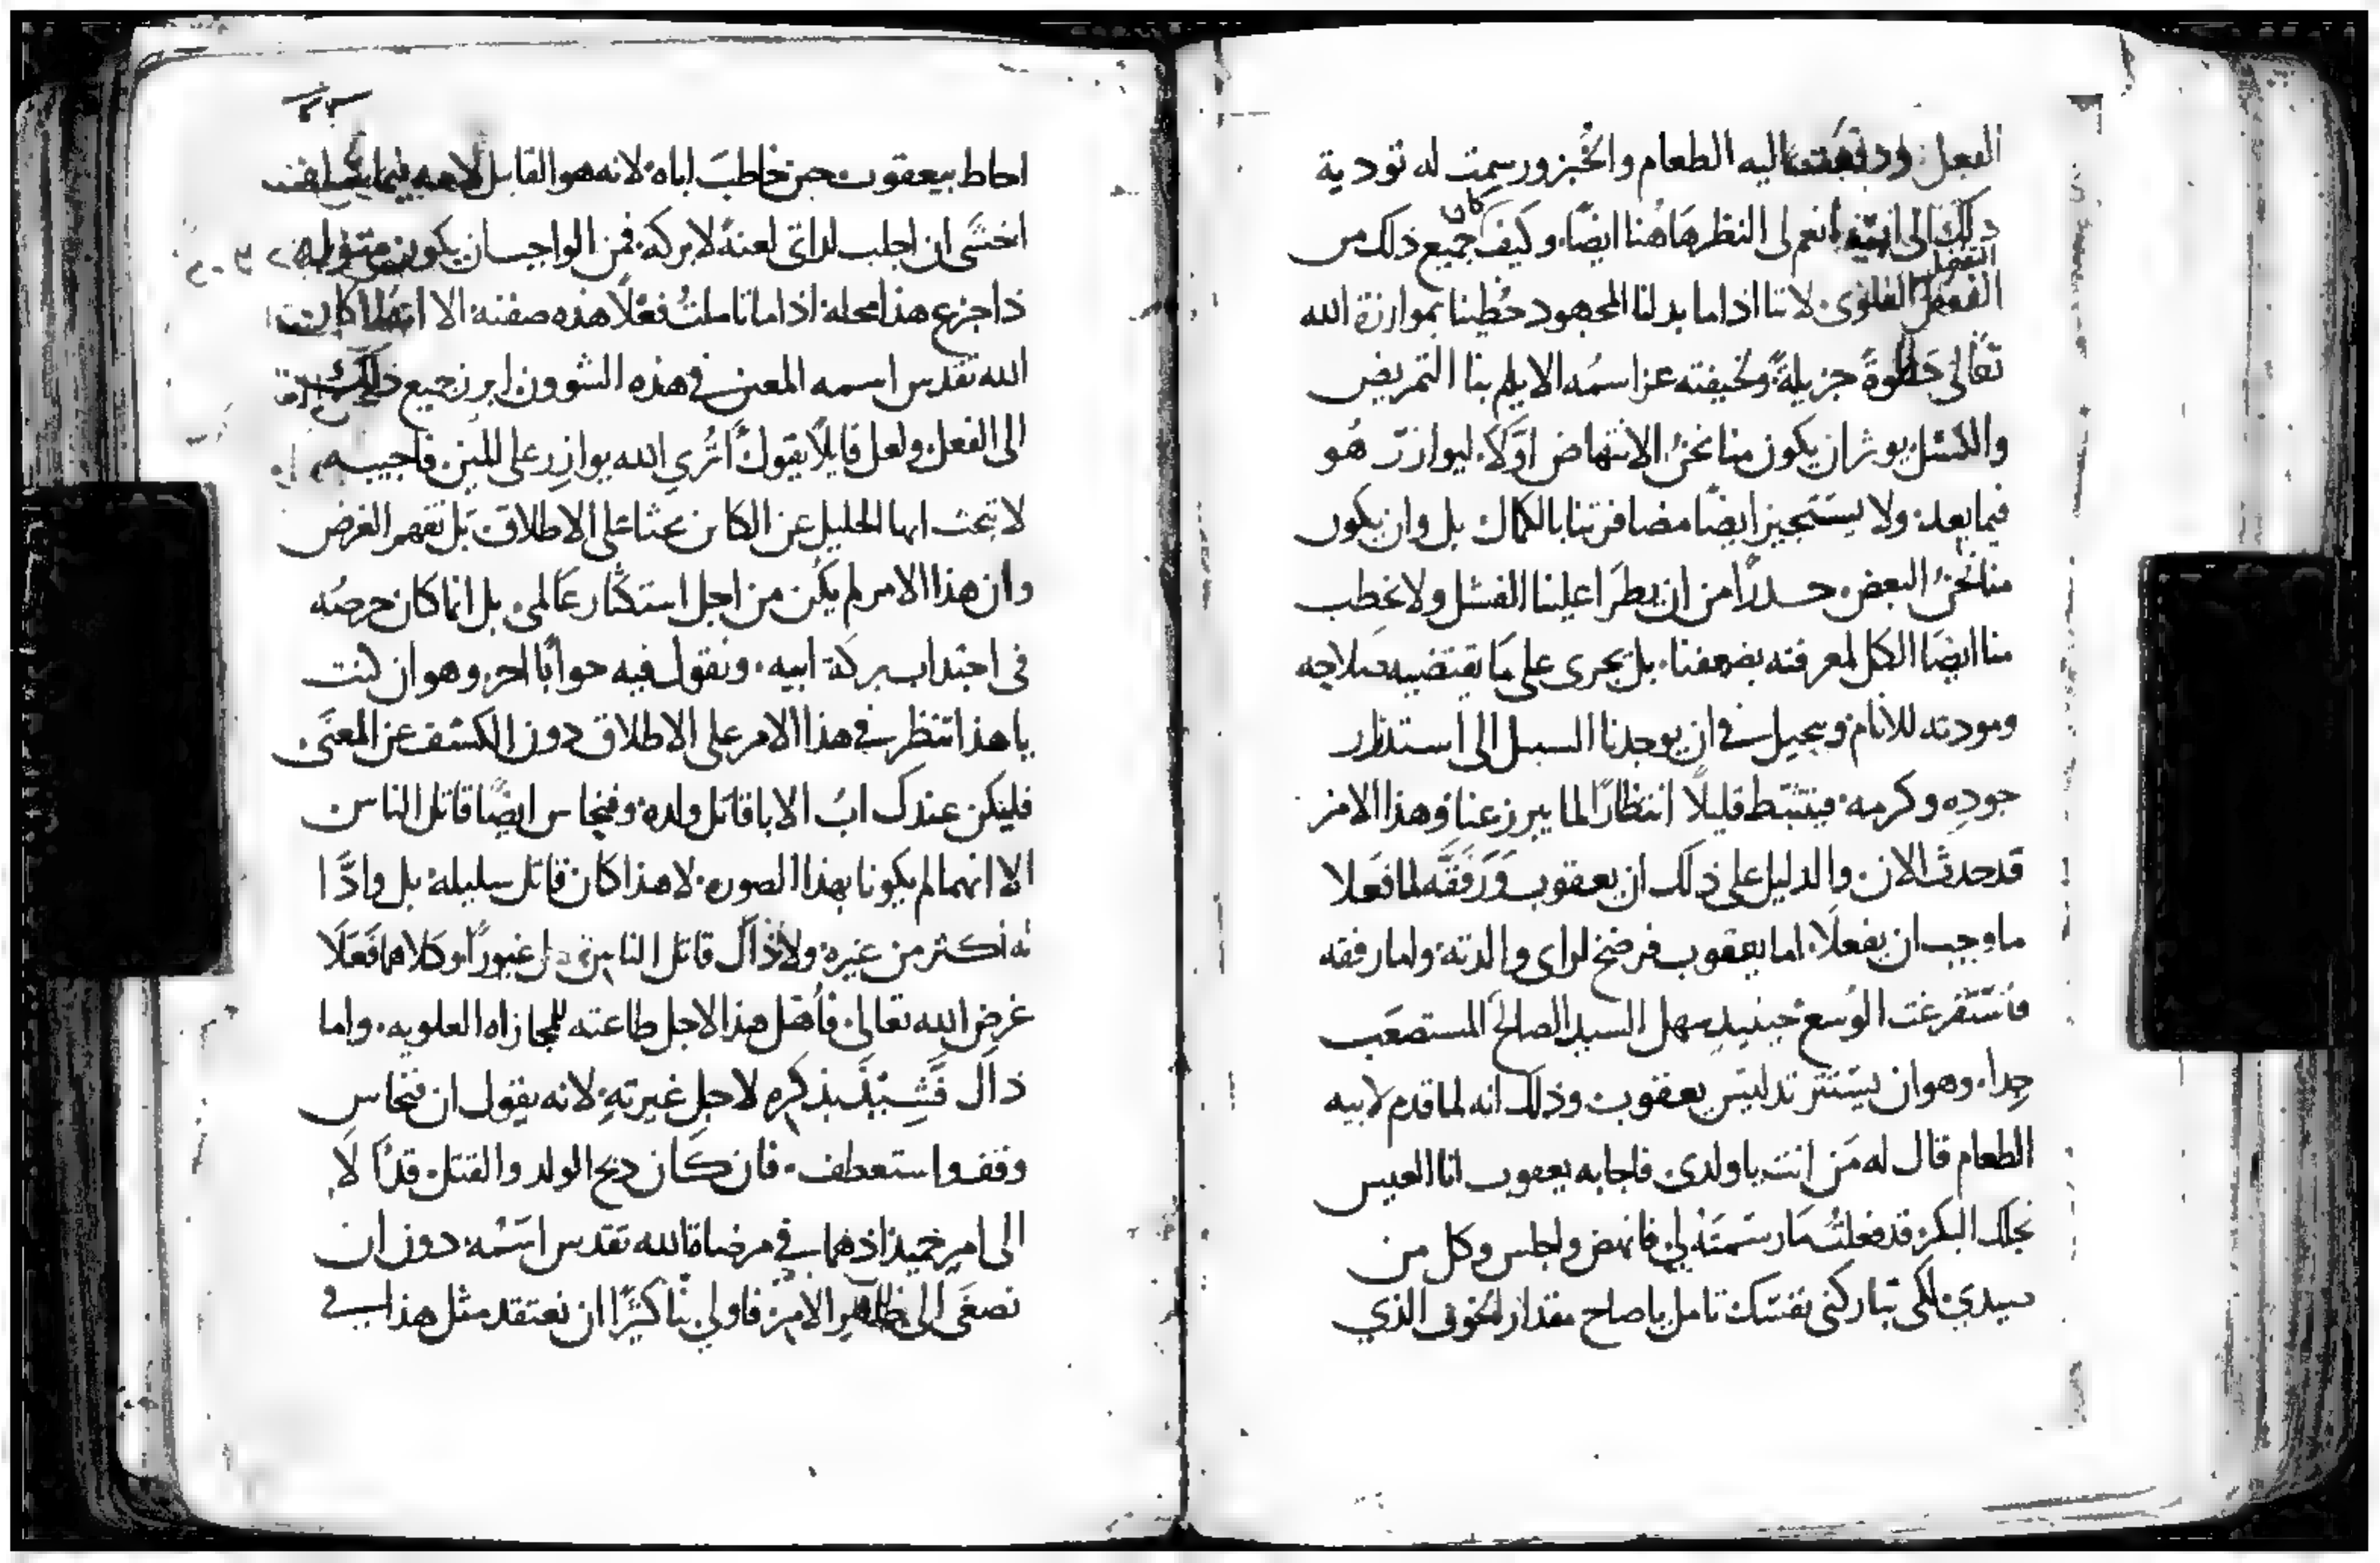 الفعل ودفعت اليه الطعام والخبز ورسمت له تودية
ذلك الى ابيه انعم لى النظر هاهنا ايضًا وكيف كان جميع ذلك من
التفضل
الفعل العلوى لاننا اذا ما بدلنا المجهود حظينا بموازرة الله
تعالى حظوةً جزيلةً ولخيفته عز اسمه الا يلم بنا التمريض
والكسل يوثر ان يكون منا نحن الانتهاض اوَّلًا ليوازر هو
فيما بعد ولا يستجيز ايضًا مضافرتنا بالكمال بل وان يكون
منا نحن البعض حدرًا من ان يطرا علينا الفشل ولا يخطب
منا ايضًا الكل لمعرفته بضعفنا بل يجرى على ما يقتضيه صلاحه
ومودته للانام ويحيل فى ان يوجدنا السبيل الى استدرار
جوده وكرمه فيتثبط قليلًا انتظارًا لما يبرز عنا وهذا الامر
قد حدث الان والدليل على ذلك ان يعقوب ورفقه لما فعلا
ما وجب ان يفعلا اما يعقوب فرضخ لراى والدته ولما رفقه
فاستفرغت الوسع حينيدٍ سهل السيد الصالح المستصعب
جدا وهو ان يستتر تدليس يعقوب وذلك انه لما قدم لابيه
الطعام قال له من انت يا ولدى فاجابه يعقوب انا العيس
نجلك البكر قد فعلت ما رسمته لى فانهض واجلس وكل من
صيدى لكى تباركنى نفسك تامل يا صاح مقدار الخوف الذي
احاط بيعقوب حين خاطب اباه لانه هو القايل لامه فيما سلف
اخشى ان اجلب لذاتى لعنة لا بركة فمن الواجب ان يكون مثوله
ذا جزع هذا محله اذا ما تاملت فعلًا هذه صفته الا انه لما كان
الله تقدس اسمه المعين فى هذه الشوون ابرز جميع ذلك
الى الفعل ولعل قايلًا يقول اترى الله يوازر على المين فاجيبه
لا تبحث ايها الخليل عن الكاين بحثا على الاطلاق بل تفهم الغرض
وان هذا الامر لم يكن من اجل استكثار عالمى بل انما كان حرصه
فى اجتداب بركة ابيه ونقول فيه جوابًا اخر وهو ان كنت
يا هذا تنظر فى هذا الامر على الاطلاق دون الكشف عن المعنى
فليكن عندك ابُ الابا قاتل ولده وفنحاس ايضًا قاتل الناس
الا انهما لم يكونا بهذا الصوره لا هذا كان قاتل سليله بل وادًّا
له اكثر من غيره ولا ذاك قاتل الناس بل غيورًا وكلاهما فعلا
غرض الله تعالى فأهل هذا لاجل طاعته للمجازاه العلويه واما
ذاك فشيد بذكره لاجل غيرته لانه يقول ان فنحاس
وقف واستعطف فان كان دبح الولد والقتل قد الا
الى امر حميد اذ هما فى مرضاة الله تقدس اسمه دون ان
نصغى الى ظاهر الامر فاولى بنا كثيرًا ان نعتقد مثل هذا فى